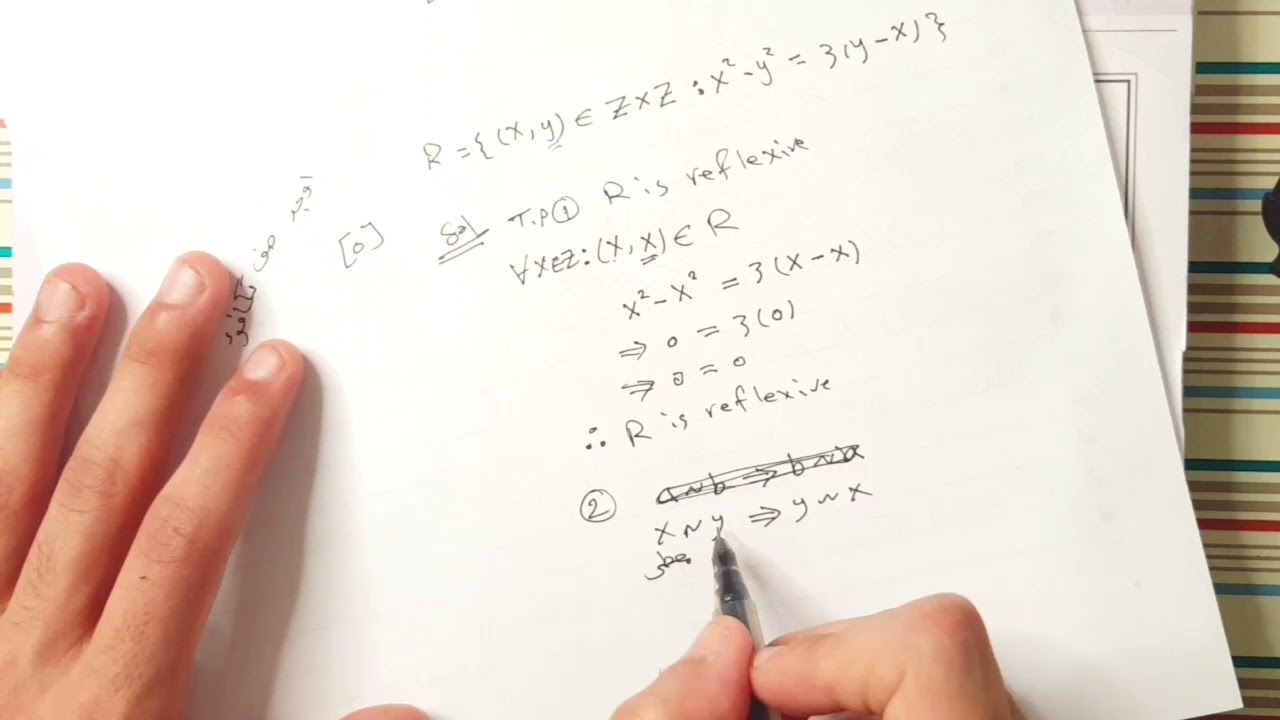 R = {(x,y) ∈ Z×Z : x² - y² = 3(y-x)}
[0] Sol T.P ① R is reflexive
∀x∈Z: (x,x) ∈ R
x² - x² = 3(x-x)
⇒ 0 = 3(0)
⇒ 0 = 0
∴ R is reflexive
② a~b ⇒ b~a
x~y ⇒ y~x